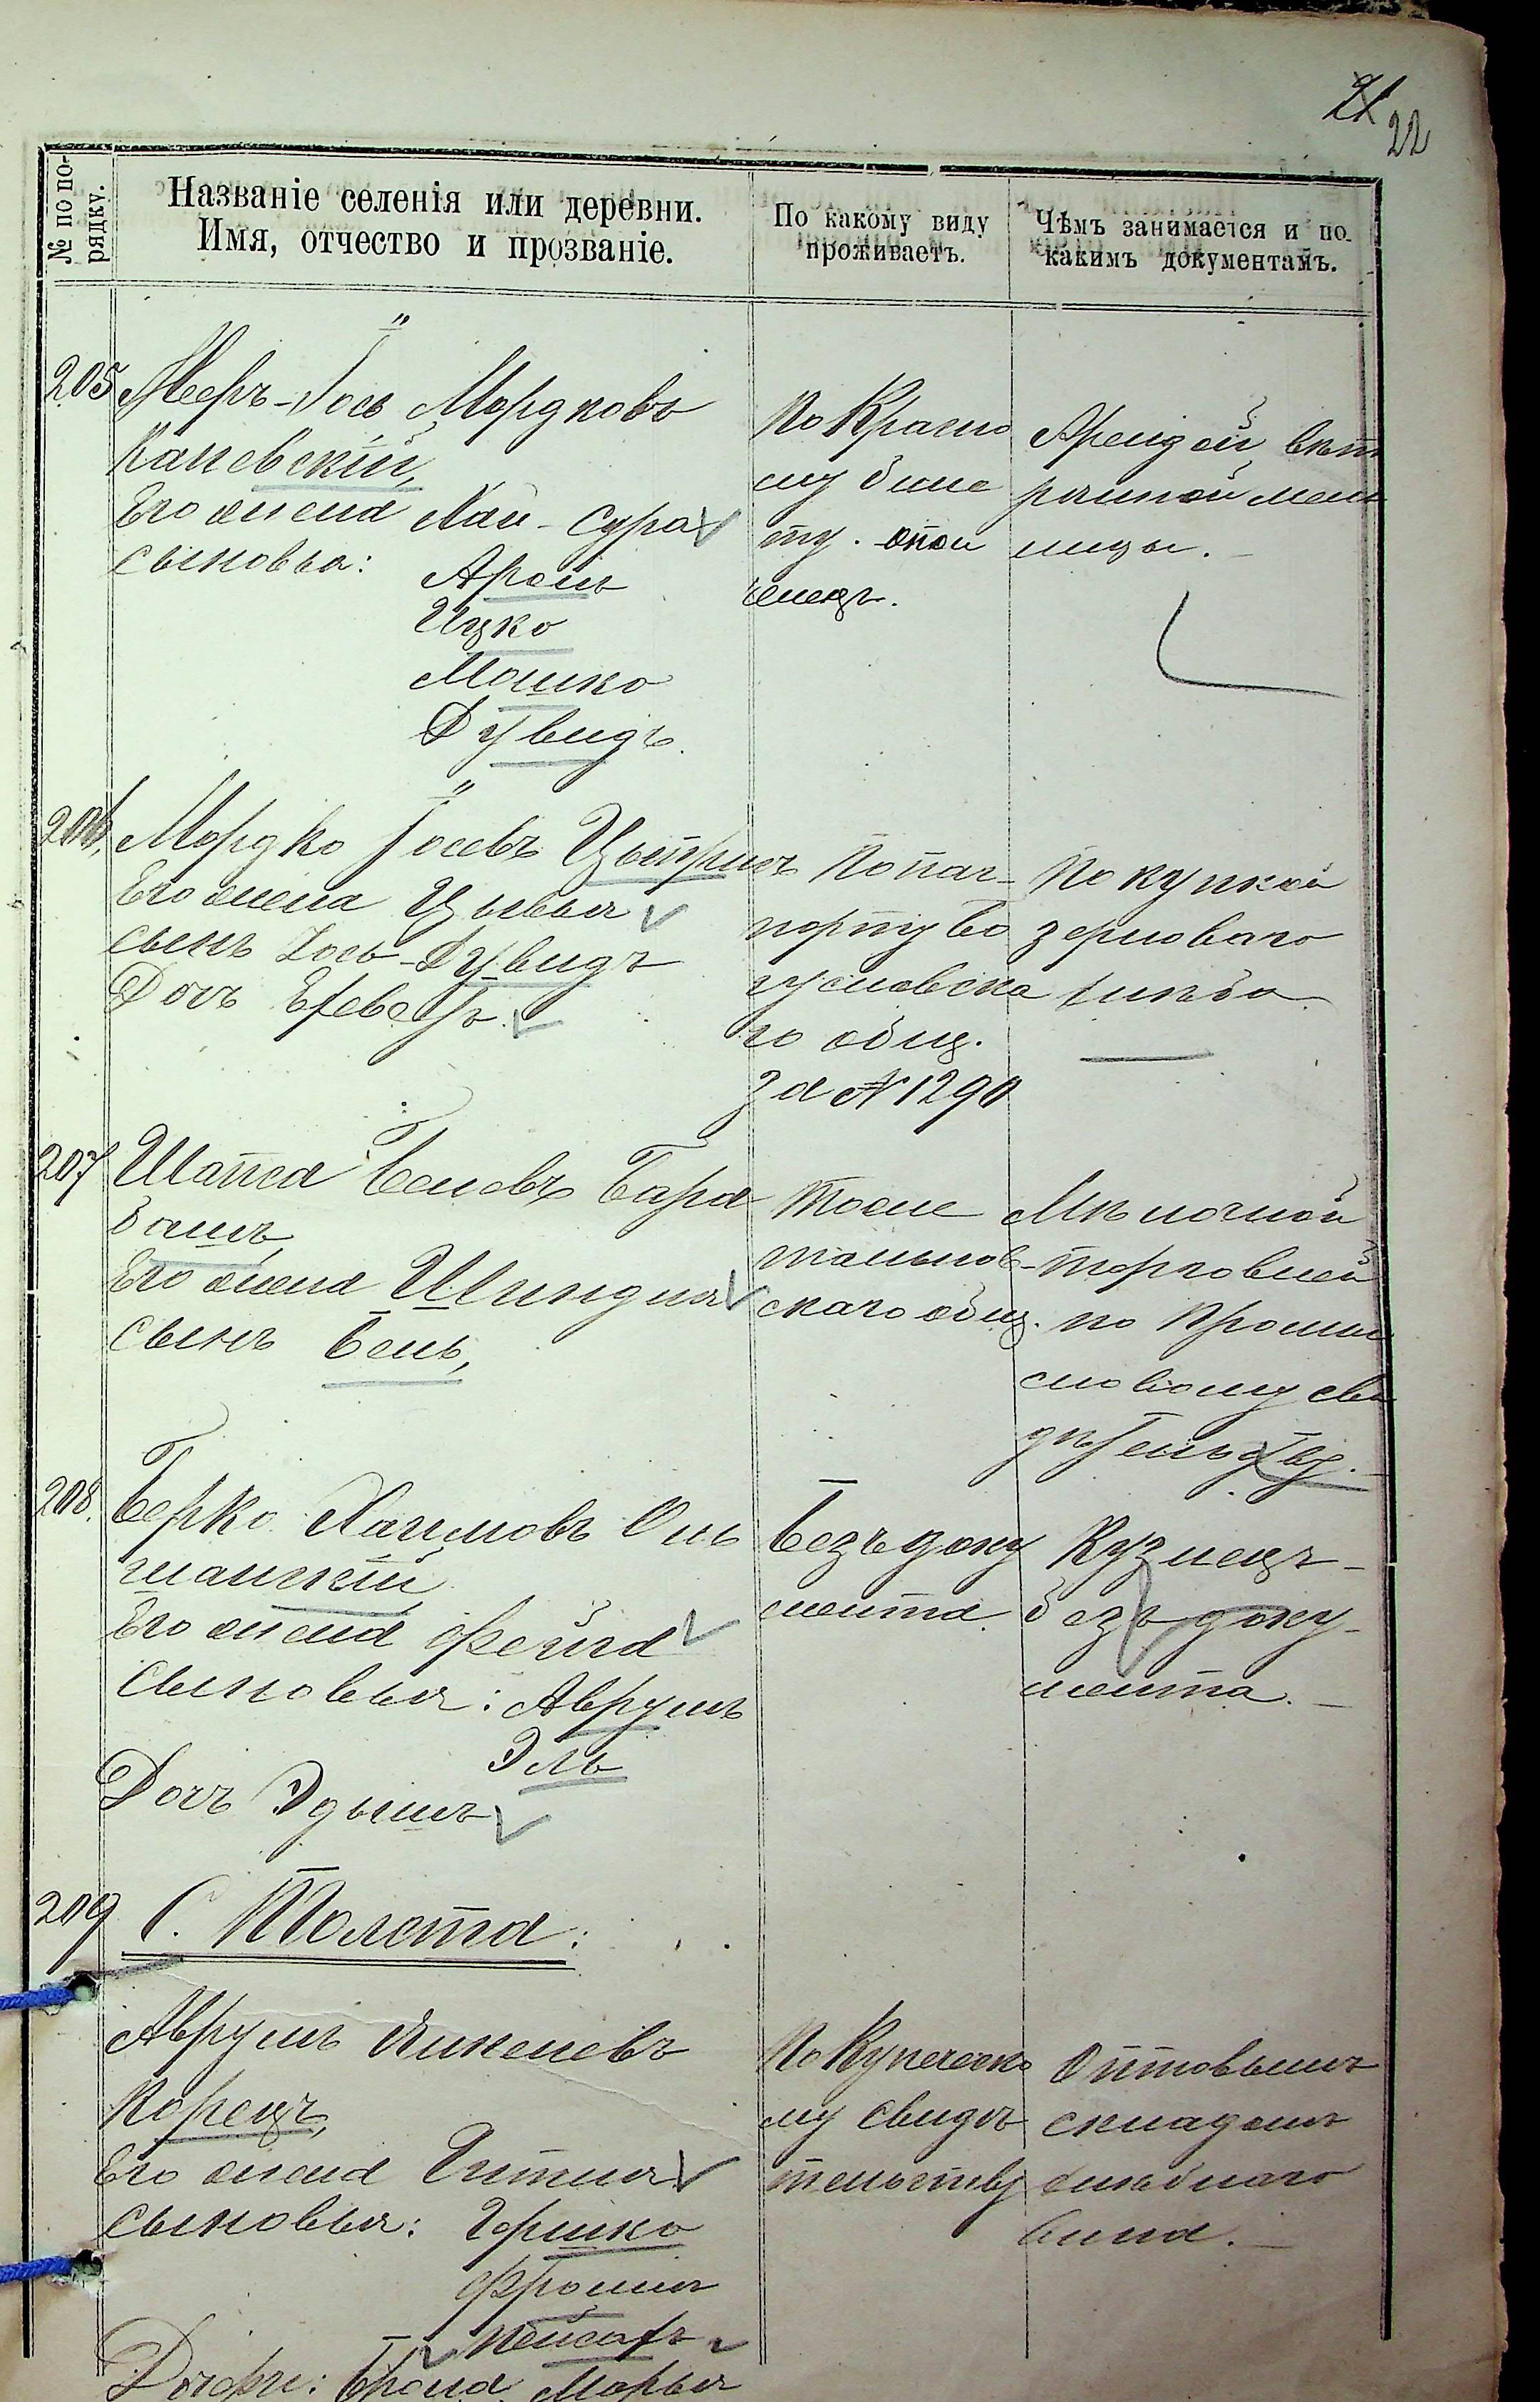 21 22
№ по по-
рядку.
Названіе селенія или деревни.
Имя, отчество и прозваніе.
По какому виду
проживаетъ.
Чѣмъ занимается и по
какимъ документамъ.
205 Мееръ-Іось Мордковъ
Каневскій,
Его жена Хая-Сура
Сыновья: Аронъ
Ицко
Мошко
Дувидъ.
По Красно
му биле
ту.
Арендой вѣт
ряной мель
ницы.
206, Мордко Іосевъ Цытринъ
Его жена Цывья
Сынъ Іось-Дувидъ
Дочь
По пас-
порту Бо
гуславска
го общ.
за № 1290
Покупкой
зерноваго
хлѣба.
207 Шапса Беневъ Бара
банъ
Его жена Шиндля
Сынъ Бень,
Тоже
тальнов-
скаго общ.
Мѣлочной
торговлей
по промы
словому сви
дѣтельству.
208. Берко Хаимовъ Оль
шанскій
Его жена Фейга
Сыновья: Аврумъ
Эль
Дочь
Безъ доку
мента.
Кузнецъ -
безъ доку-
мента.
209 С. Толста:
Аврумъ Янкелевъ
Корецъ,
Его жена Итля
Сыновья: Гершко
Фроимъ
Пейсахъ
Дочери: Брана Марья
По Купеческо
му свидѣ
тельству
Оптовымъ
складомъ
хлѣбнаго
вина.